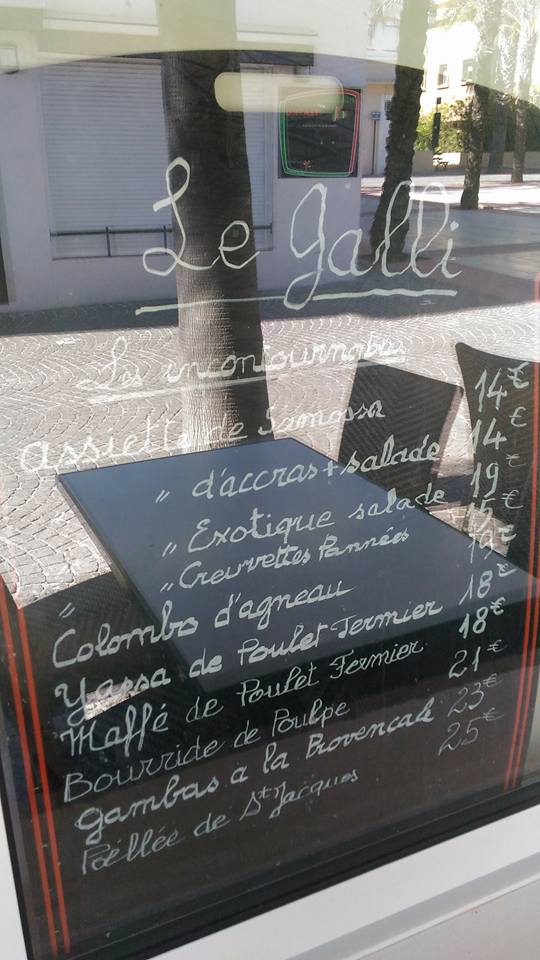 Le Galli
Les incontournables
Assiette de Samossa 14€
" d'accras + salade 14€
" Exotique salade 19€
" Crevettes Pannées 15€
Colombo d'agneau 19€
Yassa de Poulet Fermier 18€
Maffé de Poulet Fermier 18€
Bourride de Poulpe 21€
Gambas a la Provencale 23€
Poëllée de St Jacques 25€